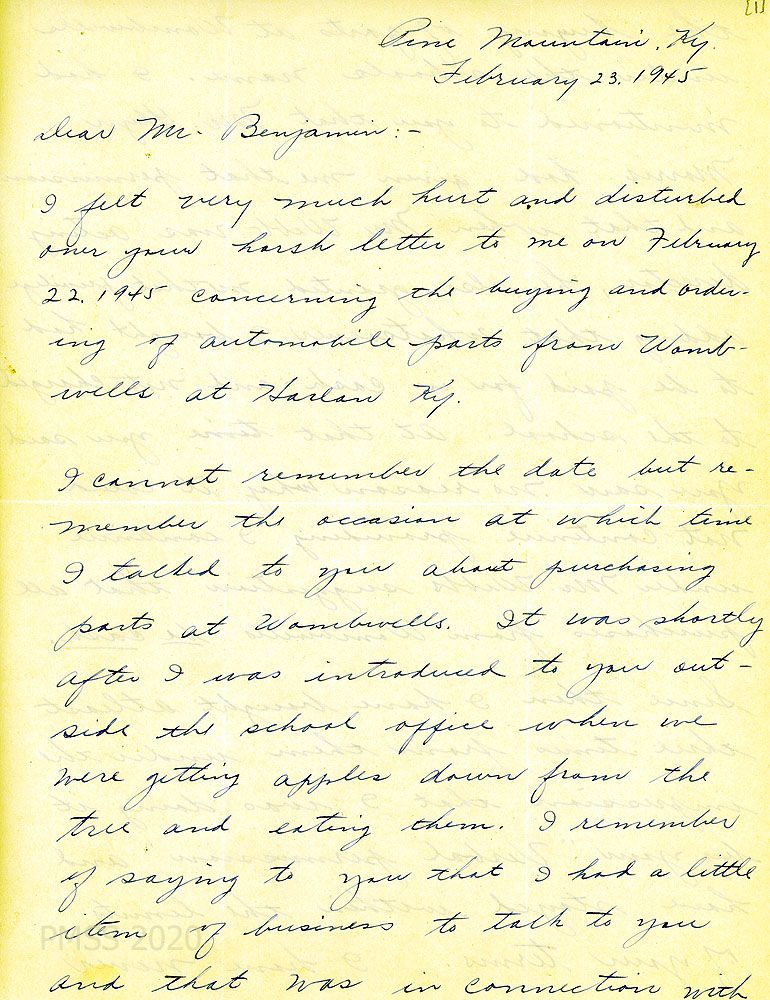 [1]
Pine Mountain, Ky.
February 23, 1945
Dear Mr. Benjamin:-
I felt very much hurt and disturbed
over your harsh letter to me on February
22, 1945 concerning the buying and order-
ing of automobile parts from Womb-
wells at Harlan Ky.
I cannot remember the date but re-
member the occasion at which time
I talked to you about purchasing
parts at Wombwells. It was shortly
after I was introduced to you out-
side the school office when we
were getting apples down from the
tree and eating them. I remember
of saying to you that I had a little
item of business to talk to you
PMSS 2020
and that was in connection with